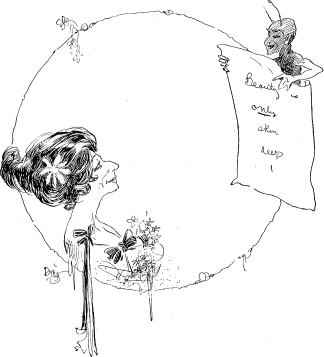 Beauty
only
skin
deep
!